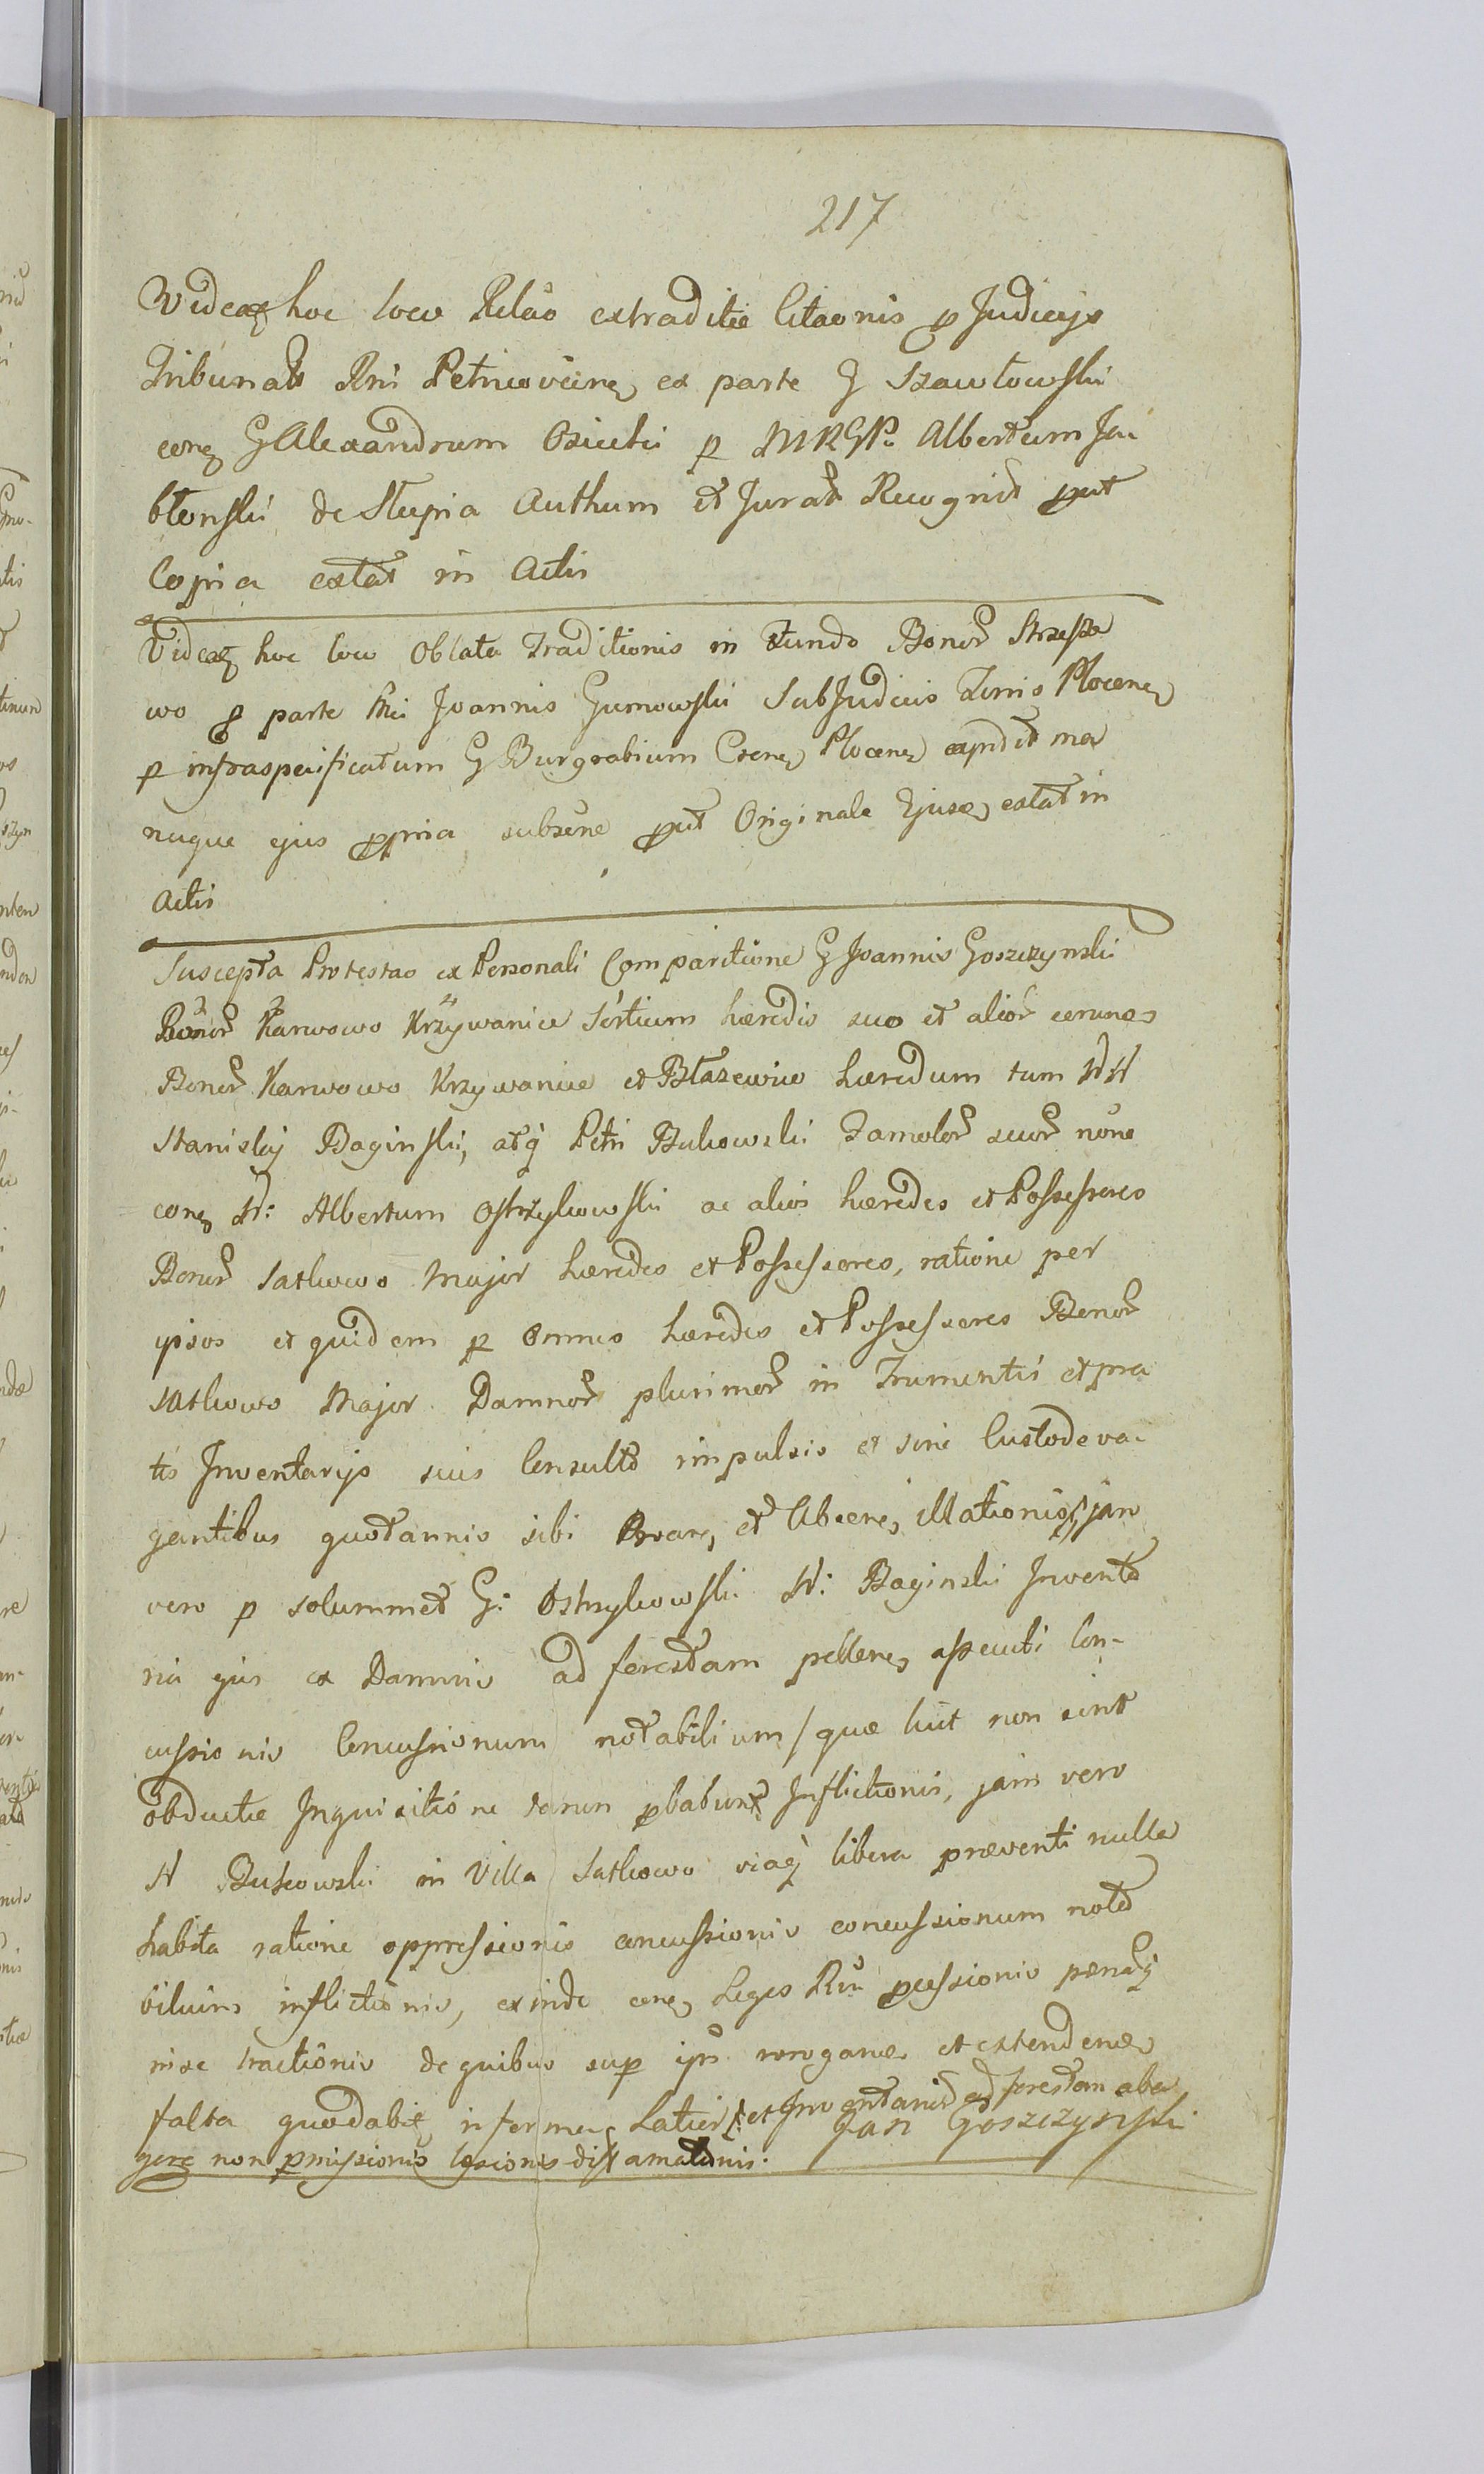 217
Videaz hoc loco Relao extraditæ Citaonis p Judicijs
Tribunats Rni Petricovien ex parte G Szawłowski
con G Alexandrum Osiecki p MRGP. Albertum Ja
błonski de Słupia Authum et Jurat Recognit put
Copia extat in Actis
Videaz hoc loco Oblata Traditionis in Fundo Bonor Strzesze
wo p parte Joannis Gumowski SubJudicis Terris Plocen
p infraspecificatum G Burgrabium Cren Plocen expedit ma
nuque ejus ppria subscne put Originale Ejusd extat in
Actis
Suscepta Protestao ex Personali Comparitione G Joannis Goszczynski
Bonor Karwowo Krzywanice hæredis suo et alior
Bonor Karwowo Krzywanice et Błazewice hæredum tum N N
Stanislaj Baginski, atq Petri Bukowski Famulor suor nõne
con N: Albertum Ostrzykowski ac alios hæredes et Possessores
Bonor Satkowo Major hæredes et Possessores, ratione per
ipsos et quidem p Omnes hæredes et Possessores Bonor
Satkowo Major Damnor plurimor in Frumentis et pra
tis Inventarijs suis Consulto impulsis et sine Custode va-
gantibus quotannis sibi et illationis, jam
vero p solummet G: Ostrzykowski N: Baginski Inventa
ria ejus ex Damnis ad forestam pellen, assecuti Con-
cussionis Concussionum notabilium / quæ licit non sint
obductæ Inquisitione tamen pbabunt Inflictionis, jam vero
N Bukowski in Villa Satkowo viaq libera præventi nulla
habita ratione oppressionis concussionis concussionum nota
bilium inflictionis, exinde con Leges Rni pcessionis pænasq
in se tractionis de quibus sup ips rerogane et extendene
salta quodabit in forma Latiori et Inventaria ad forestam abi
gere non pmissionis læsionis diffamationis. Jan Goszczynski